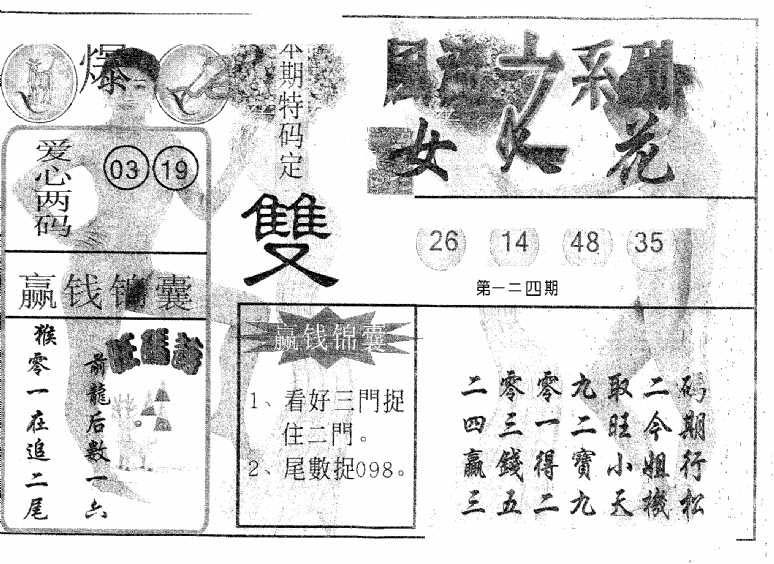 爆
本期特码定
雙
爱心两码
03 19
赢钱锦囊
猴零一在追二尾
前龍后数一六
赢钱锦囊
1、看好三門捉
住二門。
2、尾數捉098。
風流女人花系列
26 14 48 35
第一二四期
二零零九取二码
四三一二旺今期
赢錢得寶小姐行
三五二九天機松